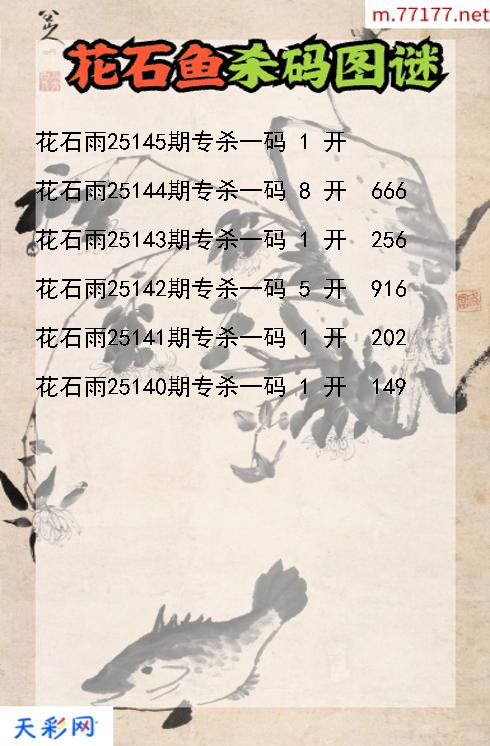 m.77177.net
八山人
花石鱼杀码图谜
花石雨25145期专杀一码 1 开
花石雨25144期专杀一码 8 开 666
花石雨25143期专杀一码 1 开 256
花石雨25142期专杀一码 5 开 916
花石雨25141期专杀一码 1 开 202
花石雨25140期专杀一码 1 开 149
天彩网